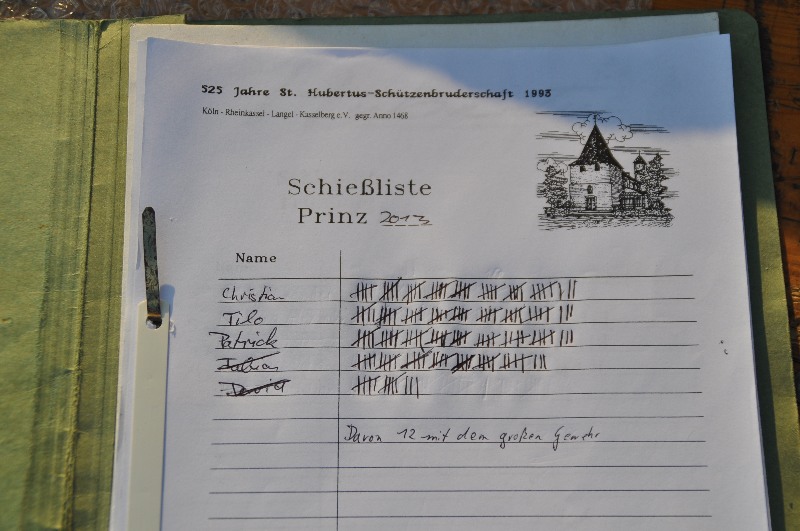 525 Jahre St. Hubertus-Schützenbruderschaft 1993
Köln - Rheinkassel - Langel - Kasselberg e.V. gegr. Anno 1468
Schießliste
Prinz 2013
Name
Christian
Tilo
Patrick
Julian
David
Davon 12 mit dem großen Gewehr